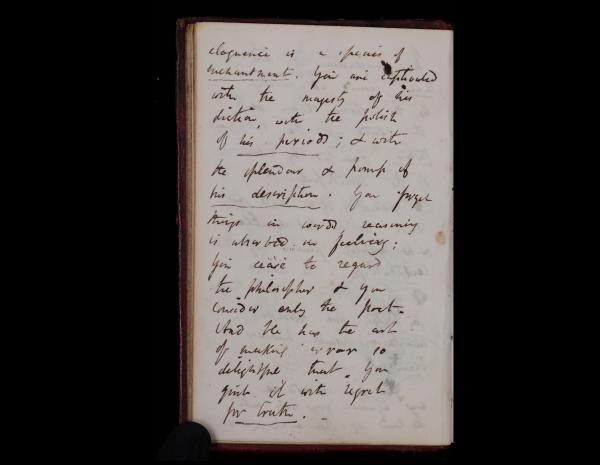 eloquence is a species of
enchantment. You are captivated
with the majesty of his
diction, with the polish
of his periods; & with
the splendour & pomp of
his description. You forget
things in words reasoning
is absorbed in feelings;
You cease to regard
the philosopher & you
consider only the poet.
And He has the art
of making error so
delightful that You
quit it with regret
for truth. -